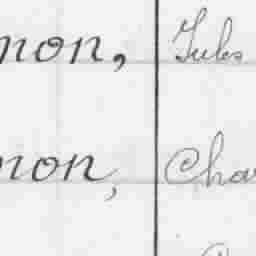 non, Jules
non, Cha